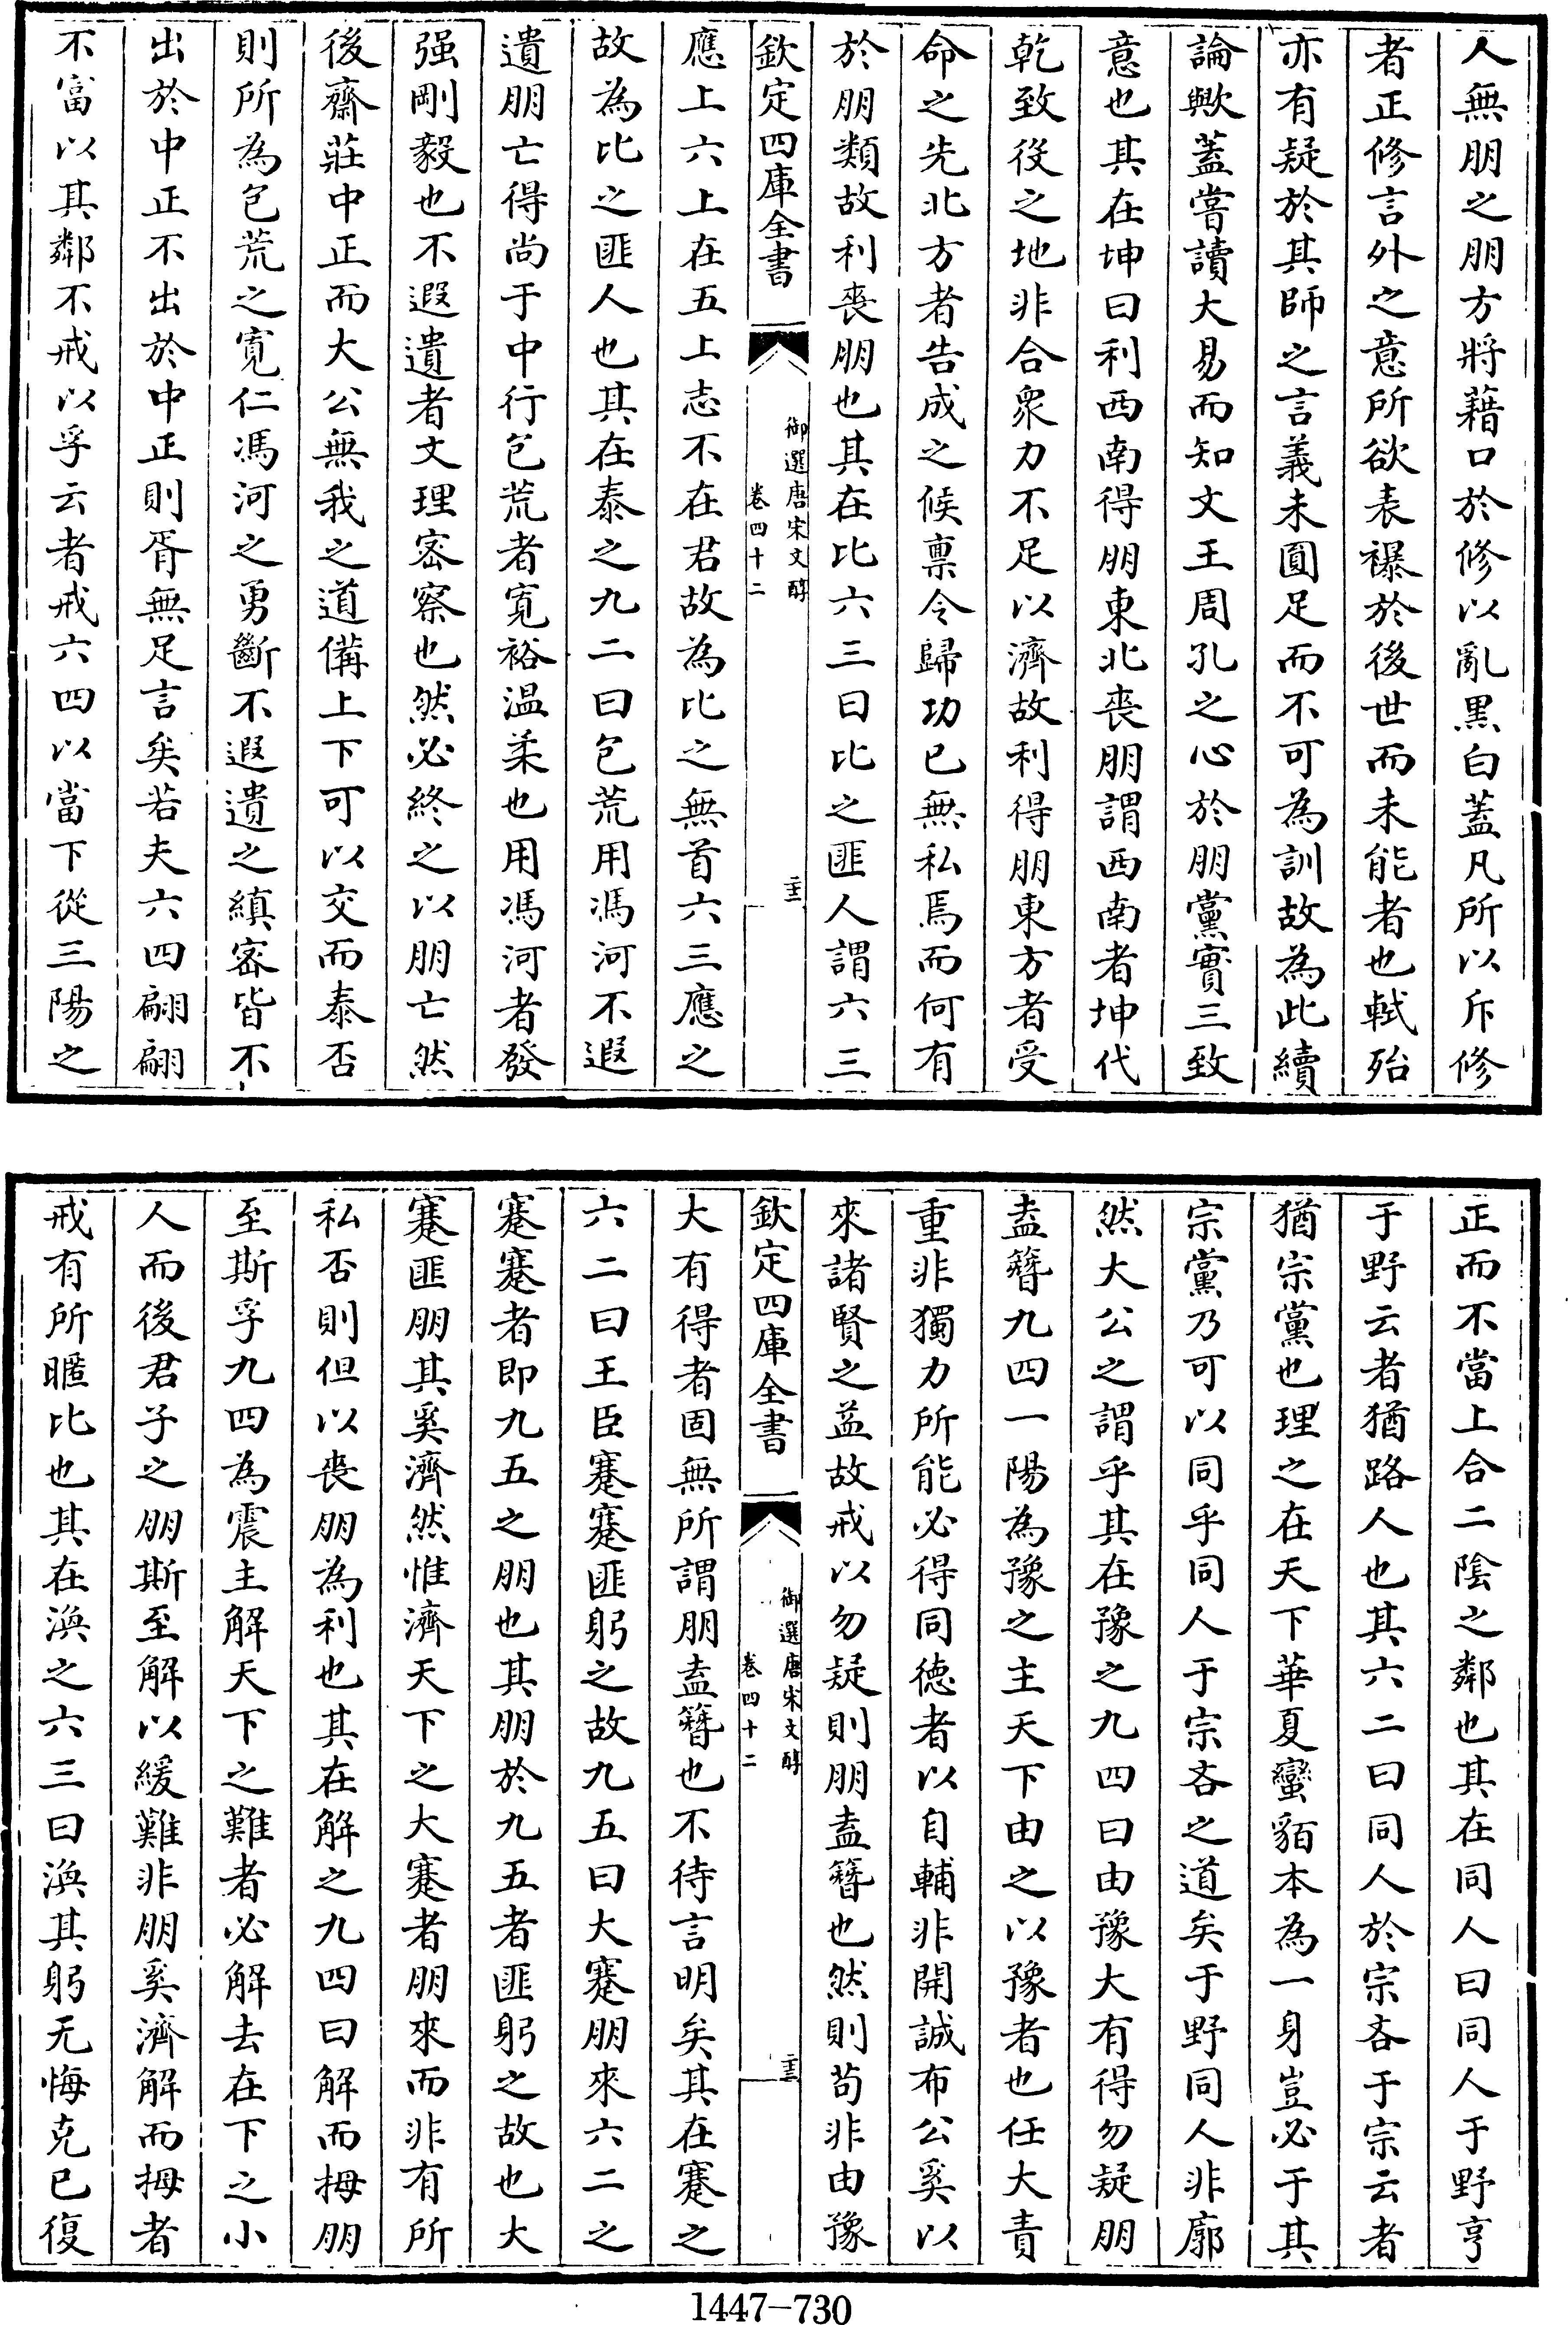 人無朋之朋方將藉口於修以亂黑白蓋凡所以斥修
者正修言外之意所欲表襮於後世而未能者也軾殆
亦有疑於其師之言義未圓足而不可為訓故為此續
論歟蓋嘗讀大易而知文王周孔之心於朋黨實三致
意也其在坤曰利西南得朋東北喪朋謂西南者坤代
乾致役之地非合衆力不足以濟故利得朋東方者受
命之先北方者告成之候禀令歸功已無私焉而何有
於朋類故利喪朋也其在比六三曰比之匪人謂六三
欽定四庫全書
御選唐宋文醇
卷四十二
應上六上在五上志不在君故為比之無首六三應之
故為比之匪人也其在泰之九二曰包荒用馮河不遐
遺朋亡得尚于中行包荒者寬裕温柔也用馮河者發
强剛毅也不遐遺者文理密察也然必終之以朋亡然
後齋莊中正而大公無我之道備上下可以交而泰否
則所為包荒之寛仁馮河之勇斷不遐遺之縝密皆不
出於中正不出於中正則胥無足言矣若夫六四翩翩
不富以其鄰不戒以孚云者戒六四以當下從三陽之
正而不當上合二陰之鄰也其在同人曰同人于野亨
于野云者猶路人也其六二曰同人於宗吝于宗云者
猶宗黨也理之在天下華夏蠻貊本為一身豈必于其
宗黨乃可以同乎同人于宗吝之道矣于野同人非廓
然大公之謂乎其在豫之九四曰由豫大有得勿疑朋
盍簪九四一陽為豫之主天下由之以豫者也任大責
重非獨力所能必得同德者以自輔非開誠布公奚以
來諸賢之益故戒以勿疑則朋盍簪也然則苟非由豫
欽定四庫全書
御選唐宋文醇
卷四十二
大有得者固無所謂朋盍簪也不待言明矣其在蹇之
六二曰王臣蹇蹇匪躬之故九五曰大蹇朋來六二之
蹇蹇者即九五之朋也其朋於九五者匪躬之故也大
蹇匪朋其奚濟然惟濟天下之大蹇者朋來而非有所
私否則但以喪朋為利也其在解之九四曰解而拇朋
至斯孚九四為震主解天下之難者必解去在下之小
人而後君子之朋斯至解以緩難非朋奚濟解而拇者
戒有所暱比也其在渙之六三曰渙其躬无悔克已復
1447-730